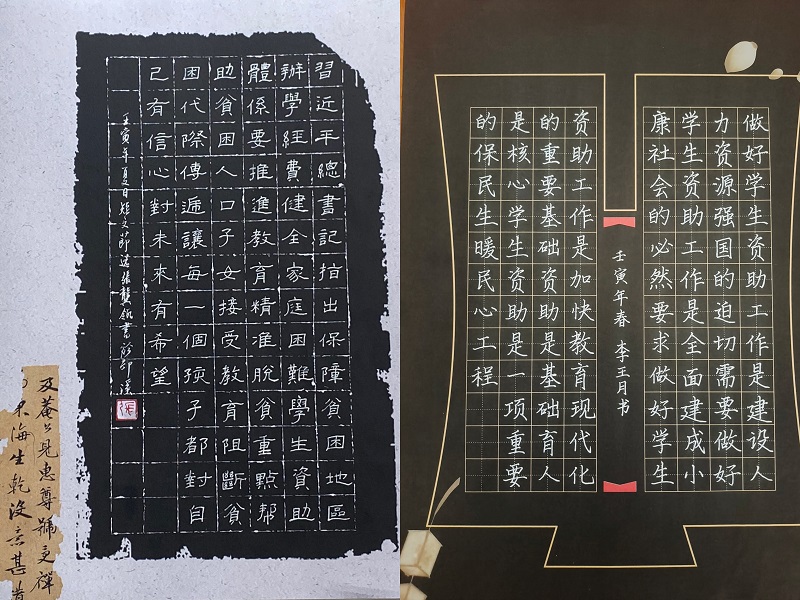 習近平總書記指出保障貧困地區
辦學經費健全家庭困難學生資助
體係要推進教育精准脫貧重點幫
助貧困人口子女接受教育阻斷貧
困代際傳遞讓每一個孩子都對自
己有信心對未來有希望
壬寅年夏日短文節選張龔書
見惠尊號更禪
海生乾没意甚
做好学生资助工作是建设人
力资源强国的迫切需要做好
学生资助工作是全面建成小
康社会的必然要求做好学生
壬寅年春 李王月书
资助工作是加快教育现代化
的重要基础资助是基础育人
是核心学生资助是一项重要
的保民生暖民心工程